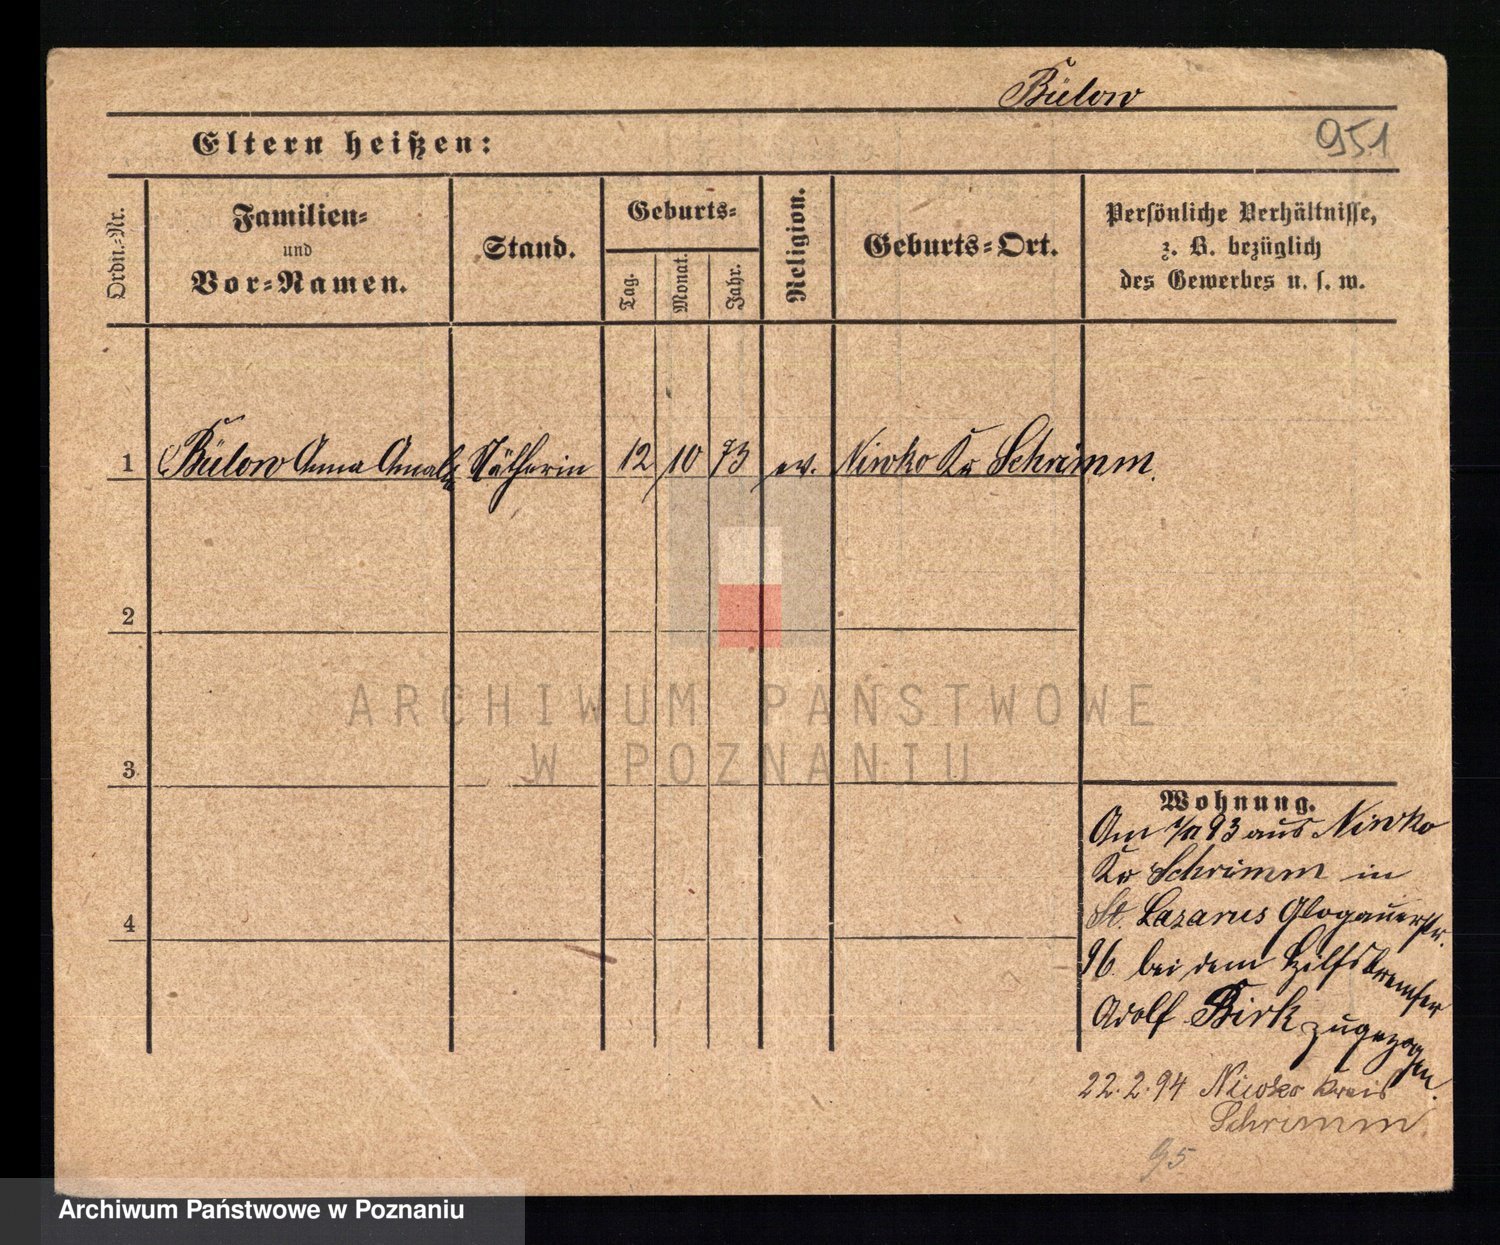 Bülow
951
Eltern heißen:
Ordn.-Nr.
Familien-
und
Vor-Namen.
Stand.
Geburts-
Tag.
Monat.
Jahr.
Religion.
Geburts-Ort.
Persönliche Verhältnisse,
z. B. bezüglich
des Gewerbes u. s. w.
1 Bülow Anna Amalie Nätherin 12 10 73 ev. Niwko Kr Schrimm.
2
3
4
Wohnung.
Am 93 aus Niwko
Kr Schrimm in
St. Lazarus Glogauerstr.
96 bei dem Hilfsbremser
Adolf Birk zugezogen.
22.2.94 Niwko Kreis
Schrimm
95
ARCHIWUM PAŃSTWOWE
W POZNANIU
Archiwum Państwowe w Poznaniu